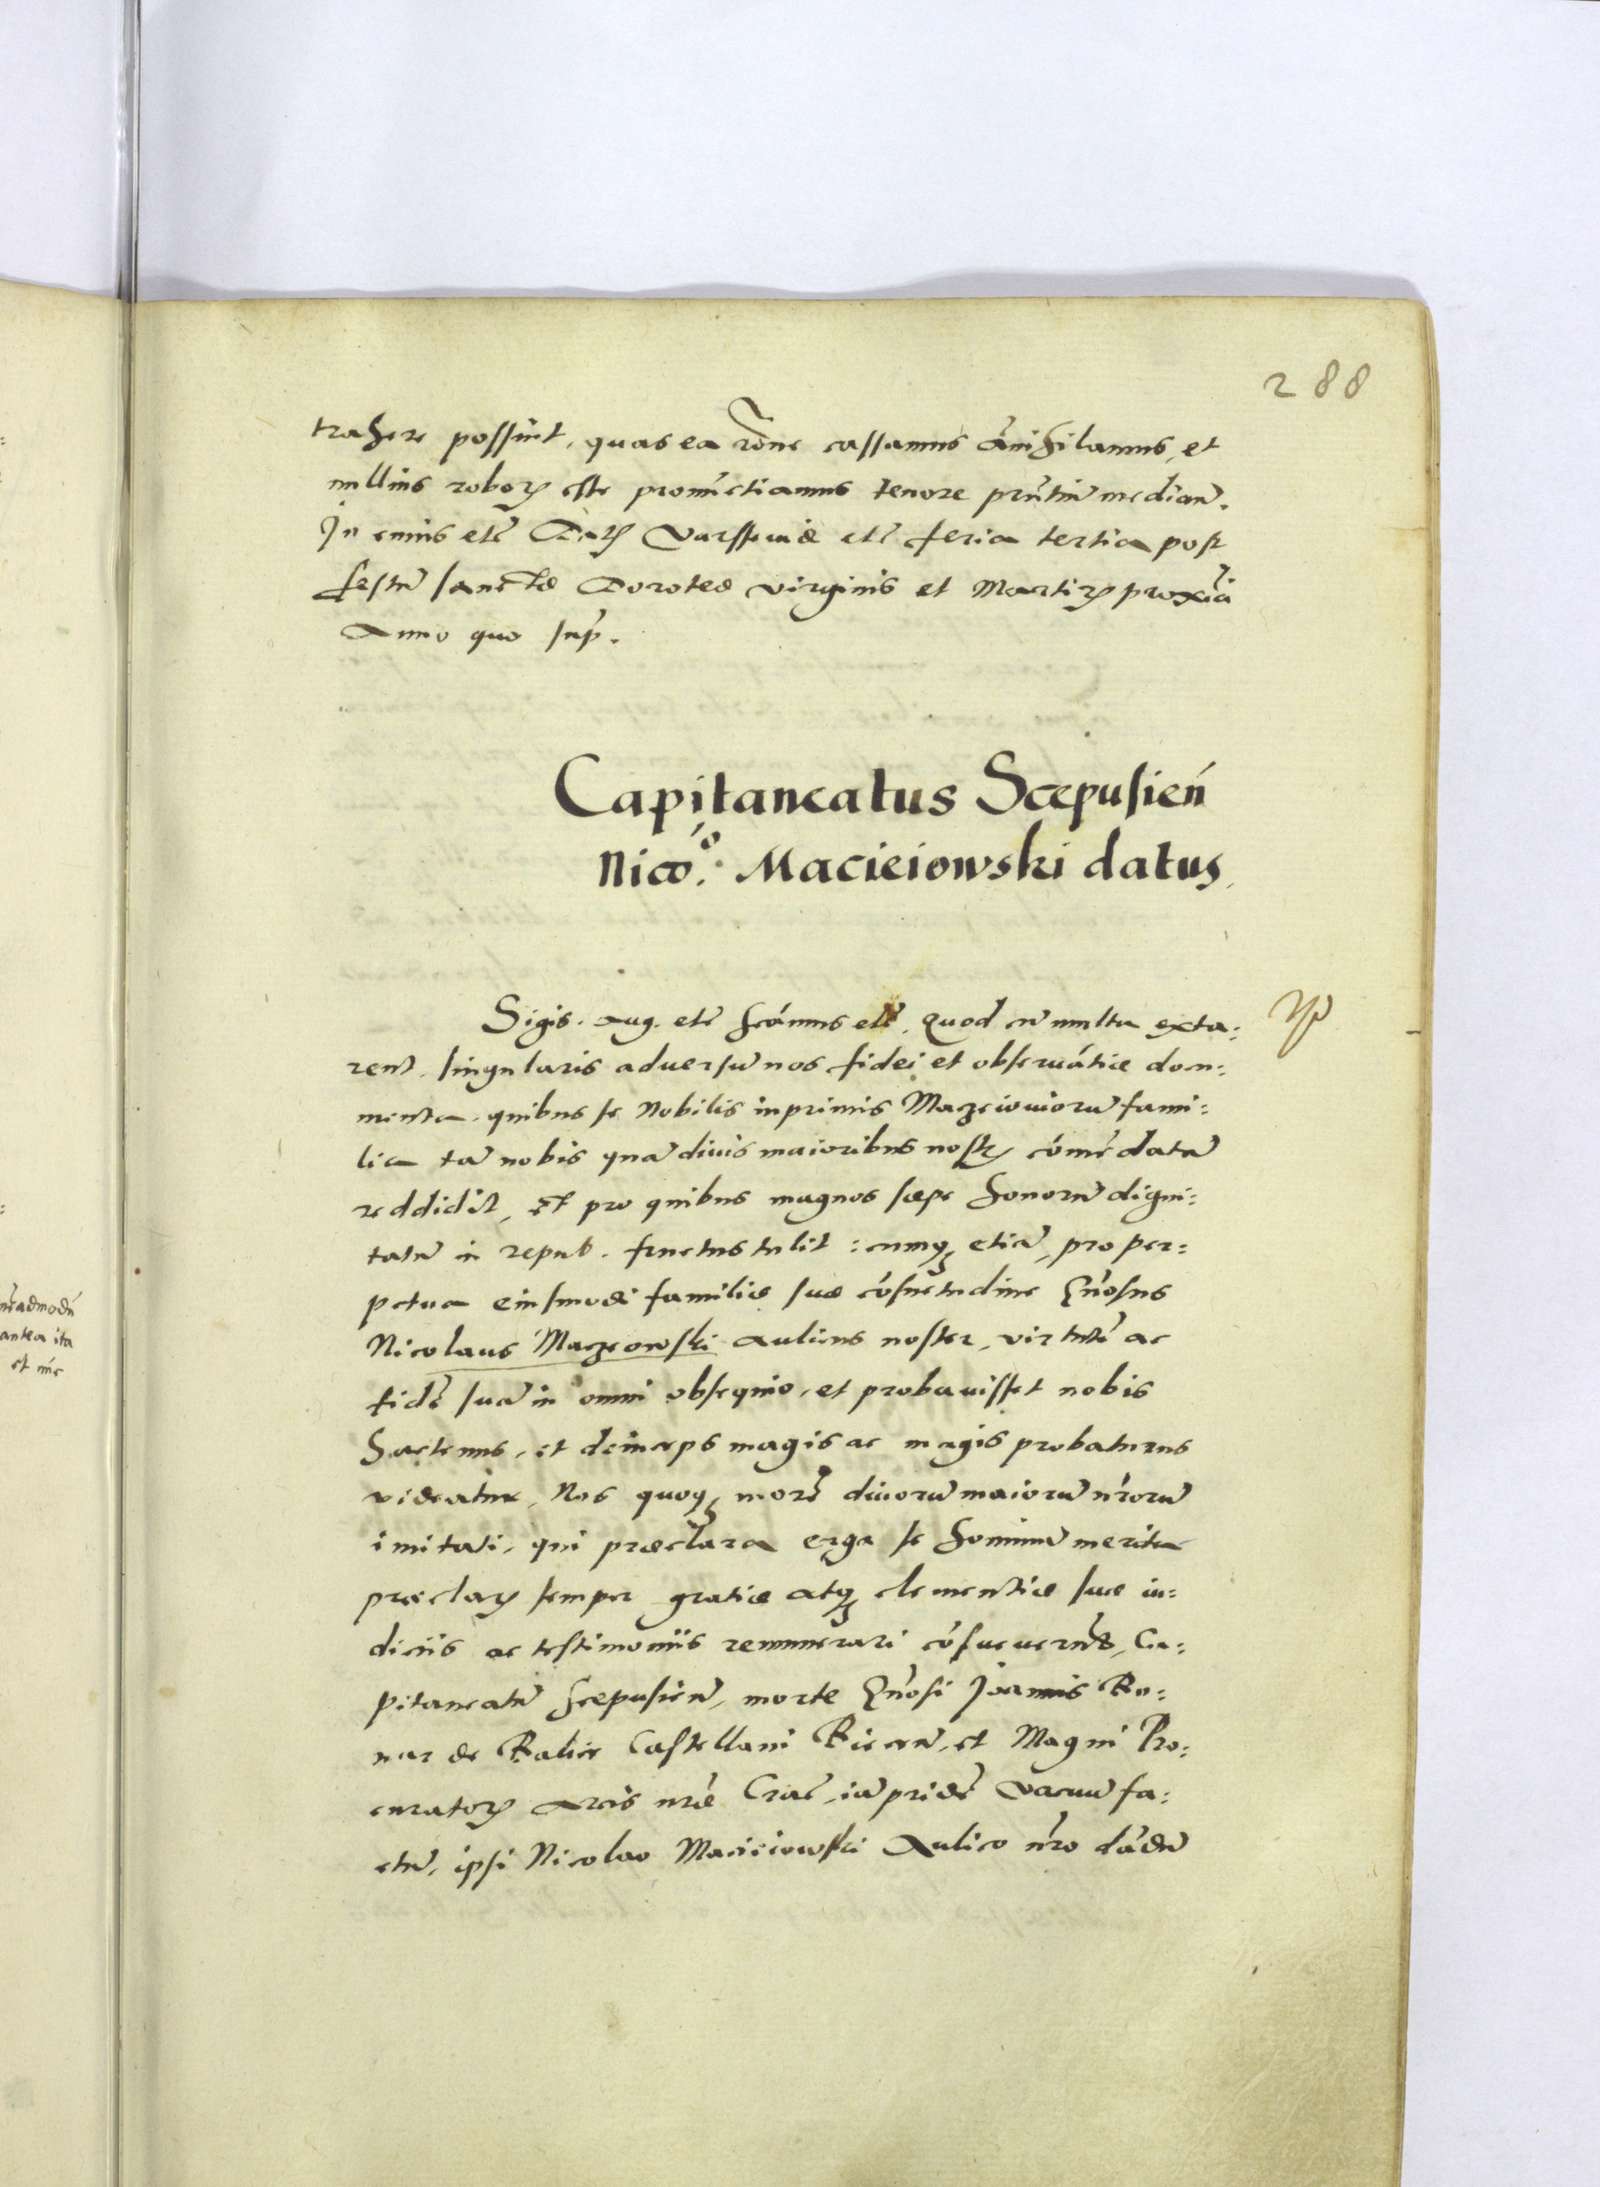 288
trahere possint, quas ea rõne cassamus ãnihilamus, et
nullius roboris esse pronũctiamus tenore prñtiũ median̄.
In cuius etc̃ Datis Varssouiæ etc̃ feria tertia post
festũ sanctæ Doroteæ virginis et Martiris proxia
Anno quo sup̃.
Capitaneatus Scepusień
Nicó. Macieiowski datus
Sigis. Aug. etc̃ scõmus etc̃. Quod cũ multa exta:
rent singularis aduersũ nos fidei et obseruãtiæ docu:
menta quibus se Nobilis inprimis Maczeiouiorũ fami:
lia tã nobis quã diuis maioribus nostris cõmẽdatã
reddidit, et pro quibus magnos sæpe honorũ digni:
tatũ in repub. fructus tulit: cumq; etiã, pro per:
petua eiusmodi familiæ suæ cõsuetudine Gñosus
Nicolaus Maczeowski Aulicus noster, virtutẽ ac
fidẽ suã in omni obsequio, et probauisset nobis
hactenus, et deinceps magis ac magis probaturus
videatur, Nos quoq; morẽ diuorũ maiorũ nr̃orũ
imitati, qui præclara erga se hominũ merita
præclaris semper gratiæ atq; clementiæ suæ iu:
diciis ac testimoniis remunerari cõsueuerũt, Ca:
pitaneatũ Scepusien̄, morte Gñosi Joannis Bo:
nar de Balice Castellani Biecen̄, et Magni Pro:
curatoris Arcis nr̃æ Crac̃, iã pridẽ vacuũ fa:
ctũ, ipsi Nicolao Macieiowski Aulico nr̃o dãdũ
ñradmodũ
antea ita
et